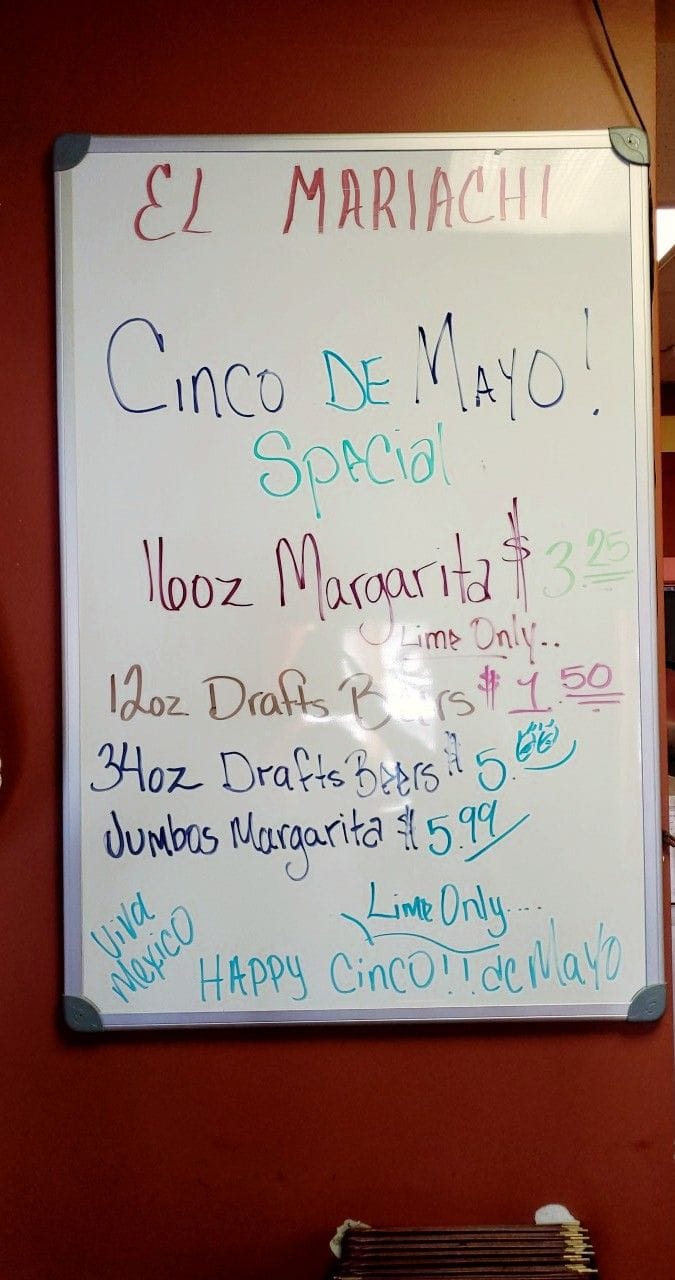 EL MARIACHI
CINCO DE MAYO!
Special
16oz Margarita $ 3.25
Lime Only..
12oz Drafts Beers $ 1.50
34oz Drafts Beers $ 5.
Jumbos Margarita $ 5.99
Lime Only....
Viva
Mexico
HAPPY CinCO!! de MaYo